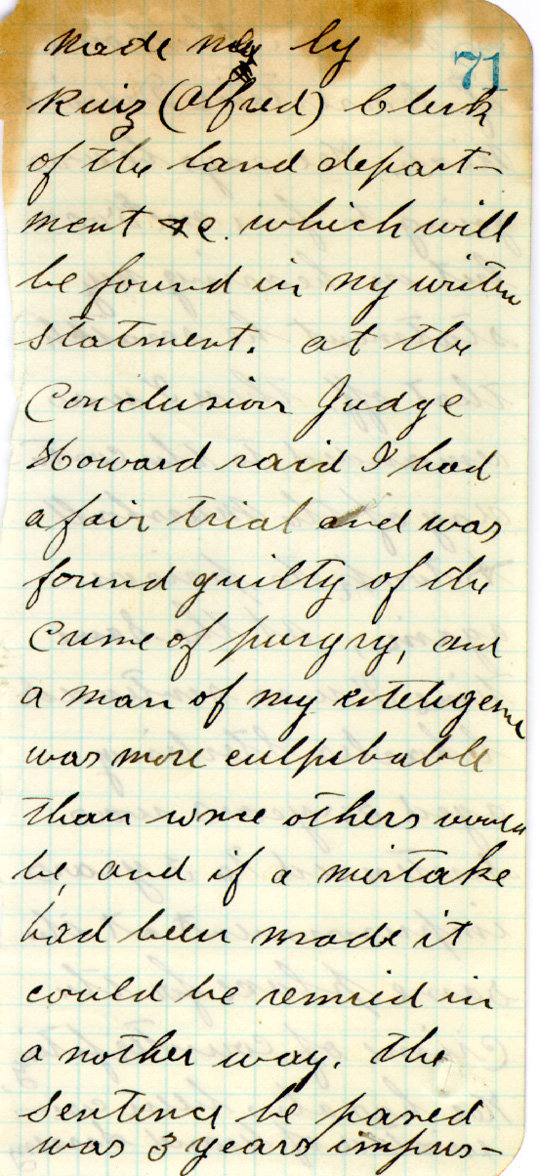 made by
71
Ruiz (Alfred) Clerk
of the land depart-
ment &c. which will
be found in my writen
statment. at the
Conclusion Judge
Howard said I had
a fair trial and was
found guilty of the
Crime of purgry, and
a man of my
was more culpubable
than some others would
be, and if a mistake
had been made it
could be remied in
a nother way. the
Sentence he passed
was 3 years impris-